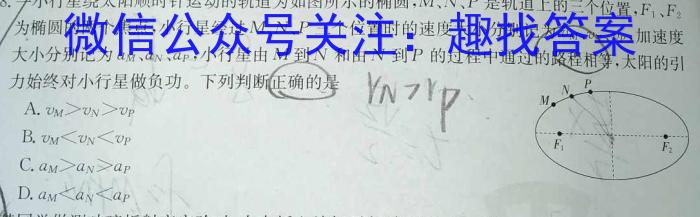 8. 一小行星绕太阳顺时针运动的轨道为如图所示的椭圆,M、N、P 是轨道上的三个位置,F₁、F₂
为椭圆的 小行星经过M、N、P 个位置时的速度 加速度
微信公众号关注:趣找答案
大小分别记为aM、aN、aP,小行星由M到N 和由N到P 的过程中通过的路程相等,太阳的引
力始终对小行星做负功。下列判断正确的是
vN>vP
A. vM>vN>vP
B. vM<vN<vP
C. aM>aN>aP
D. aM<aN<aP
M N P
F₁ F₂